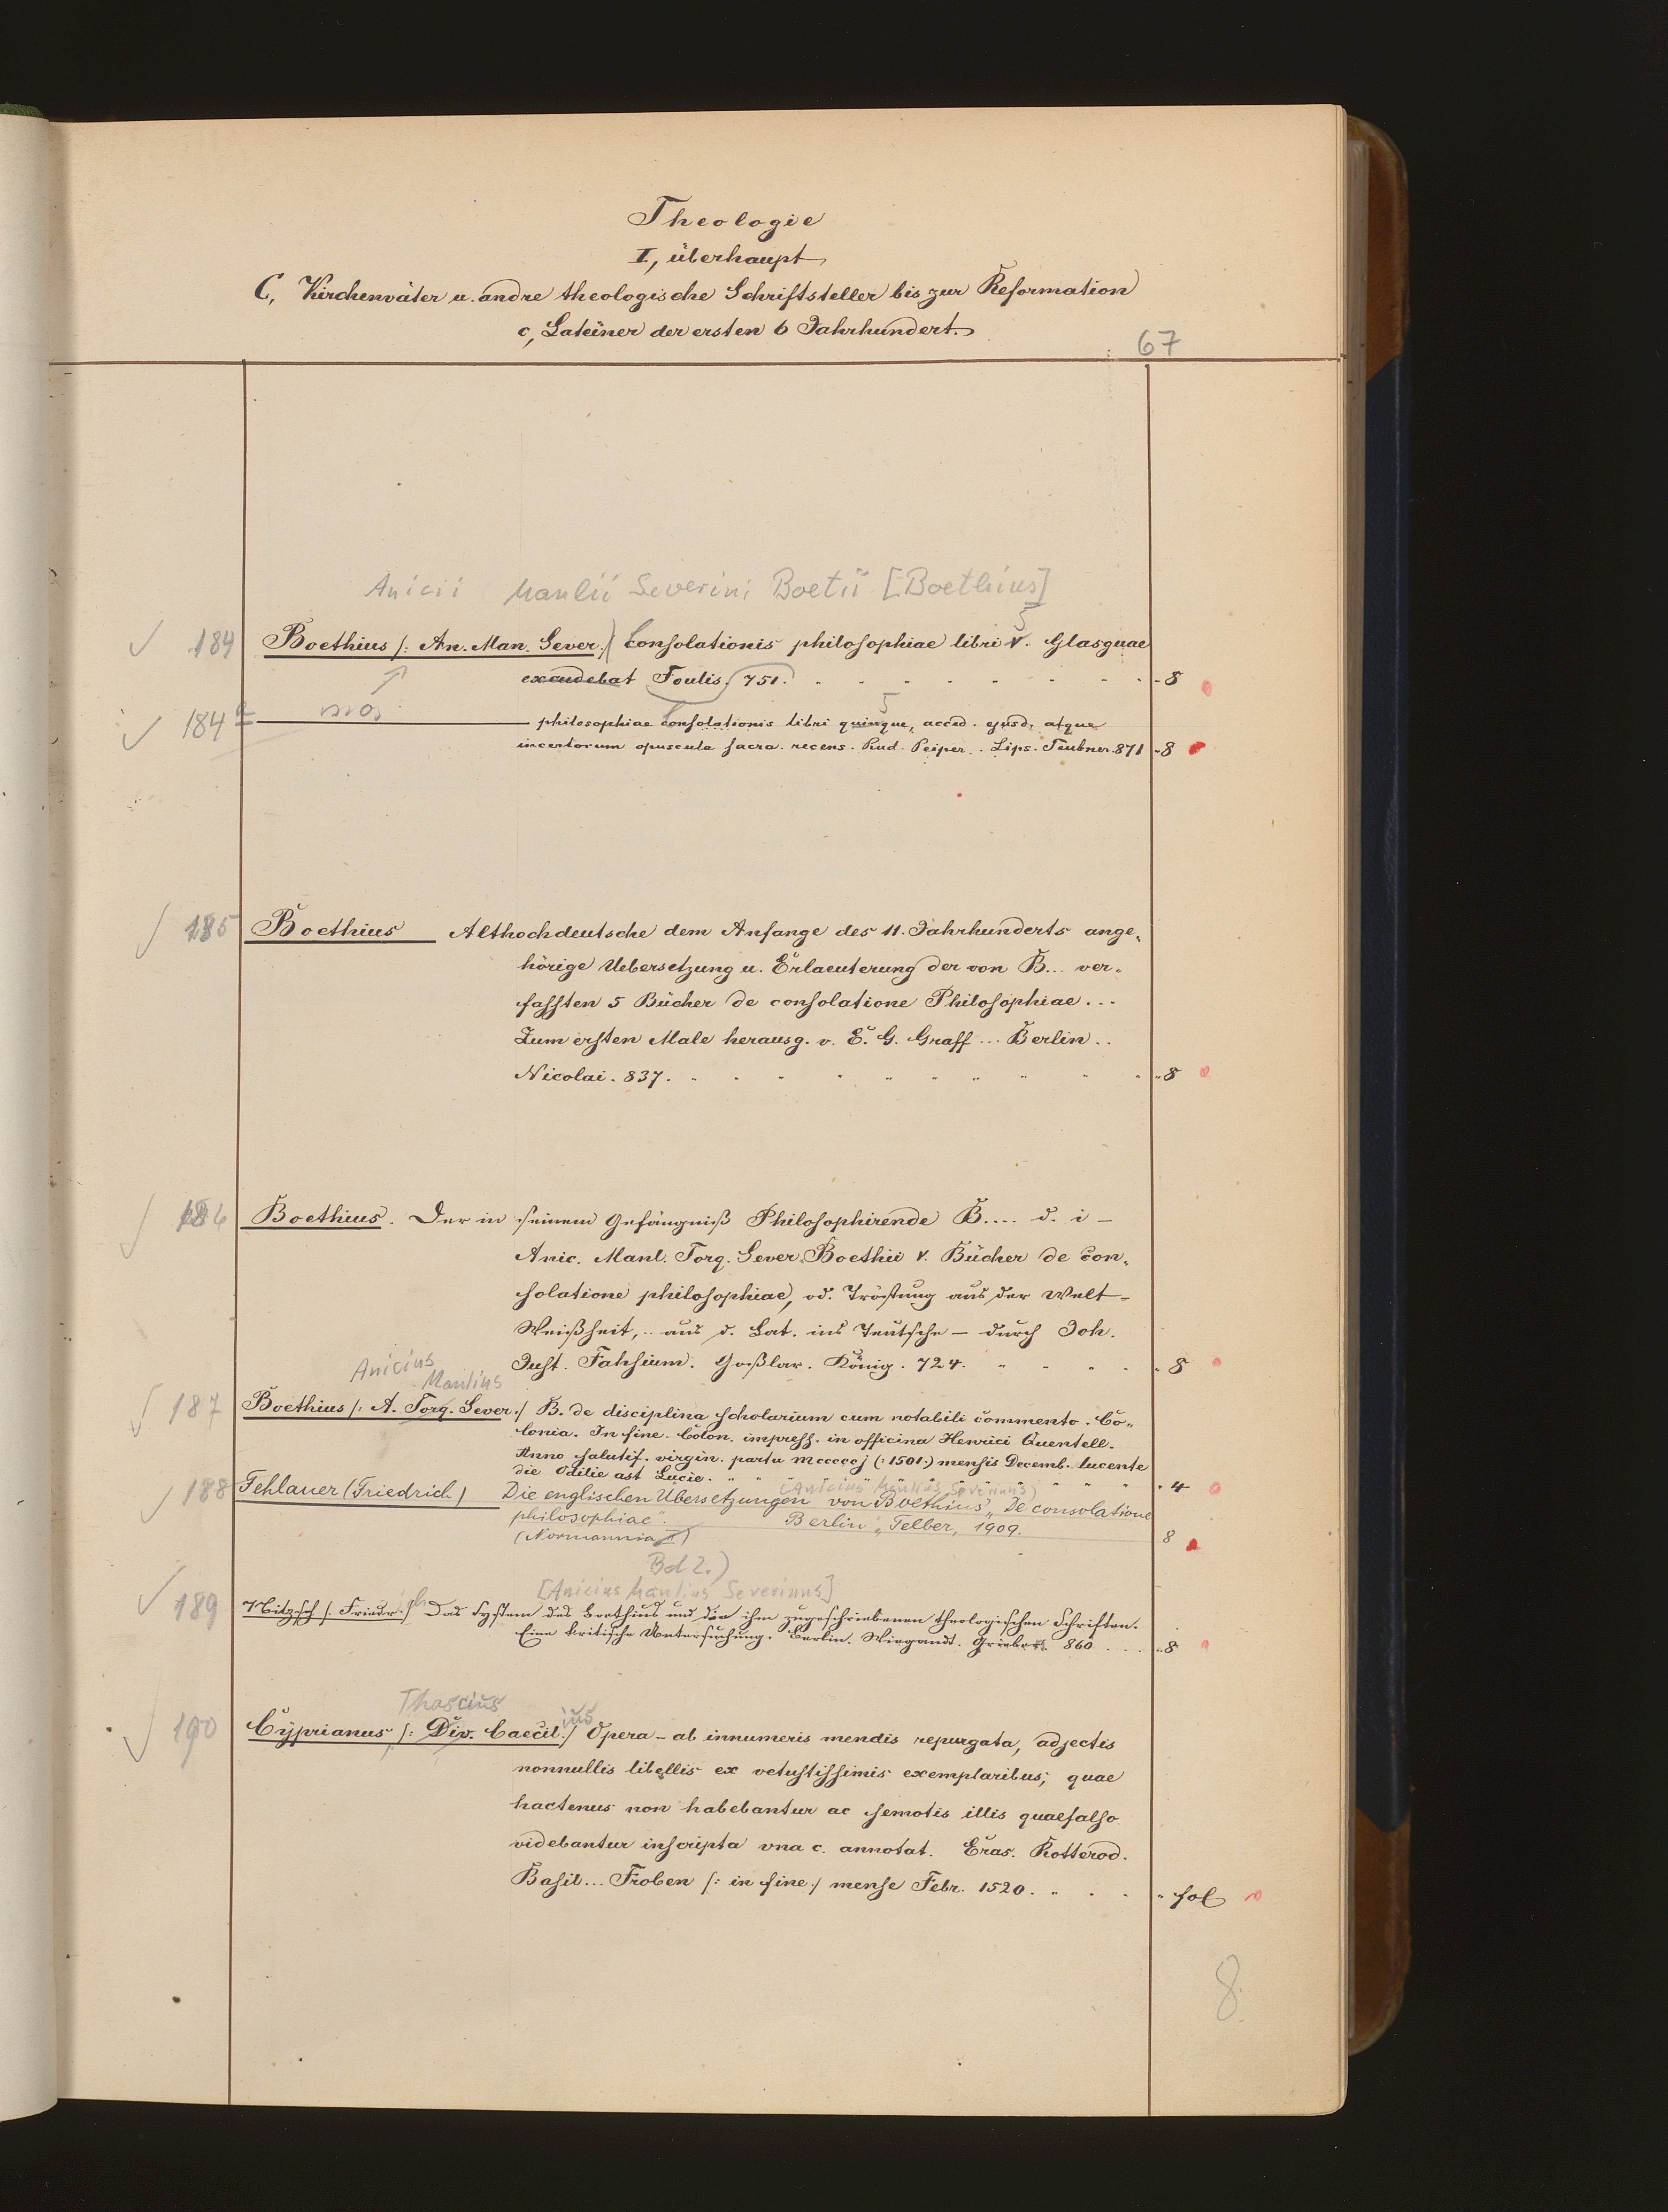 Theologie
I, überhaupt
C, Kirchenväter u. andre theologische Schriftsteller bis zur Reformation
c, Lateiner der ersten 6 Jahrhundert.
67
Anicii Manlii Severini Boetii [Boethius]
5
184 Boethius /: An. Man. Sever :/ Consolationis philosophiae libri V. Glasguae
excudebat Foulis. 751. 8
5
184a philosophiae Consolationis libri quinque, acced. ejusd. atque
incertorum opuscula sacra. recens. Rud. Peiper. Lips. Teubner. 871 8
185 Boethius Althochdeutsche dem Anfange des 11. Jahrhunderts ange-
hörige Uebersetzung u. Erlaeuterung der von B... ver-
fassten 5 Bücher de consolatione Philosophiae ...
Zum ersten Male herausg. v. E. G. Graff ... Berlin ..
Nicolai. 837. 8
186 Boethius. Der in seinem Gefängniß Philosophirende B.... d. i -
Anic. Manl. Torq. Sever. Boethii V. Bücher de con-
solatione philosophiae, od. Tröstung aus der Welt-
Weißheit, .. aus d. Lat. ins Teutsche - durch Joh.
Just. Fahsium. Goßlar. König. 724. 8
Anicius
Manlius
187 Boethius /: A. Torq. Sever :/ B. de disciplina scholarium cum notabili commento. Co-
lonia. In fine. Colon. impress. in officina Henrici Quentell.
Anno salutif. virgin. partu mcccccj (: 1501:) mensis Decemb. lucente
die Odilie ast Lucie. 4
(Anicius Manlius Severinus)
188 Fehlauer (Friedrich) Die englischen Übersetzungen von Boethius' „De consolatione
philosophiae". Berlin, Felber, 1909.
(Normannia II) 8
Bd 2.)
[Anicius Manlius Severinus]
189 Nitzsch /: Friedr. :/ich Das System des Boethius und die ihm zugeschriebenen theologischen Schriften.
Eine kritische Untersuchung. Berlin. Wiegandt. Grieben. 860 8
Thascius
190 Cyprianus /: Div. Caecil. :/ius Opera - ab innumeris mendis repurgata, adjectis
nonnullis libellis ex vetustissimis exemplaribus, quae
hactenus non habebantur ac semotis illis quae falso
videbantur inscripta vna c. annotat. Eras. Rotterod.
Basil... Froben /: in fine :/ mense Febr. 1520. fol
8